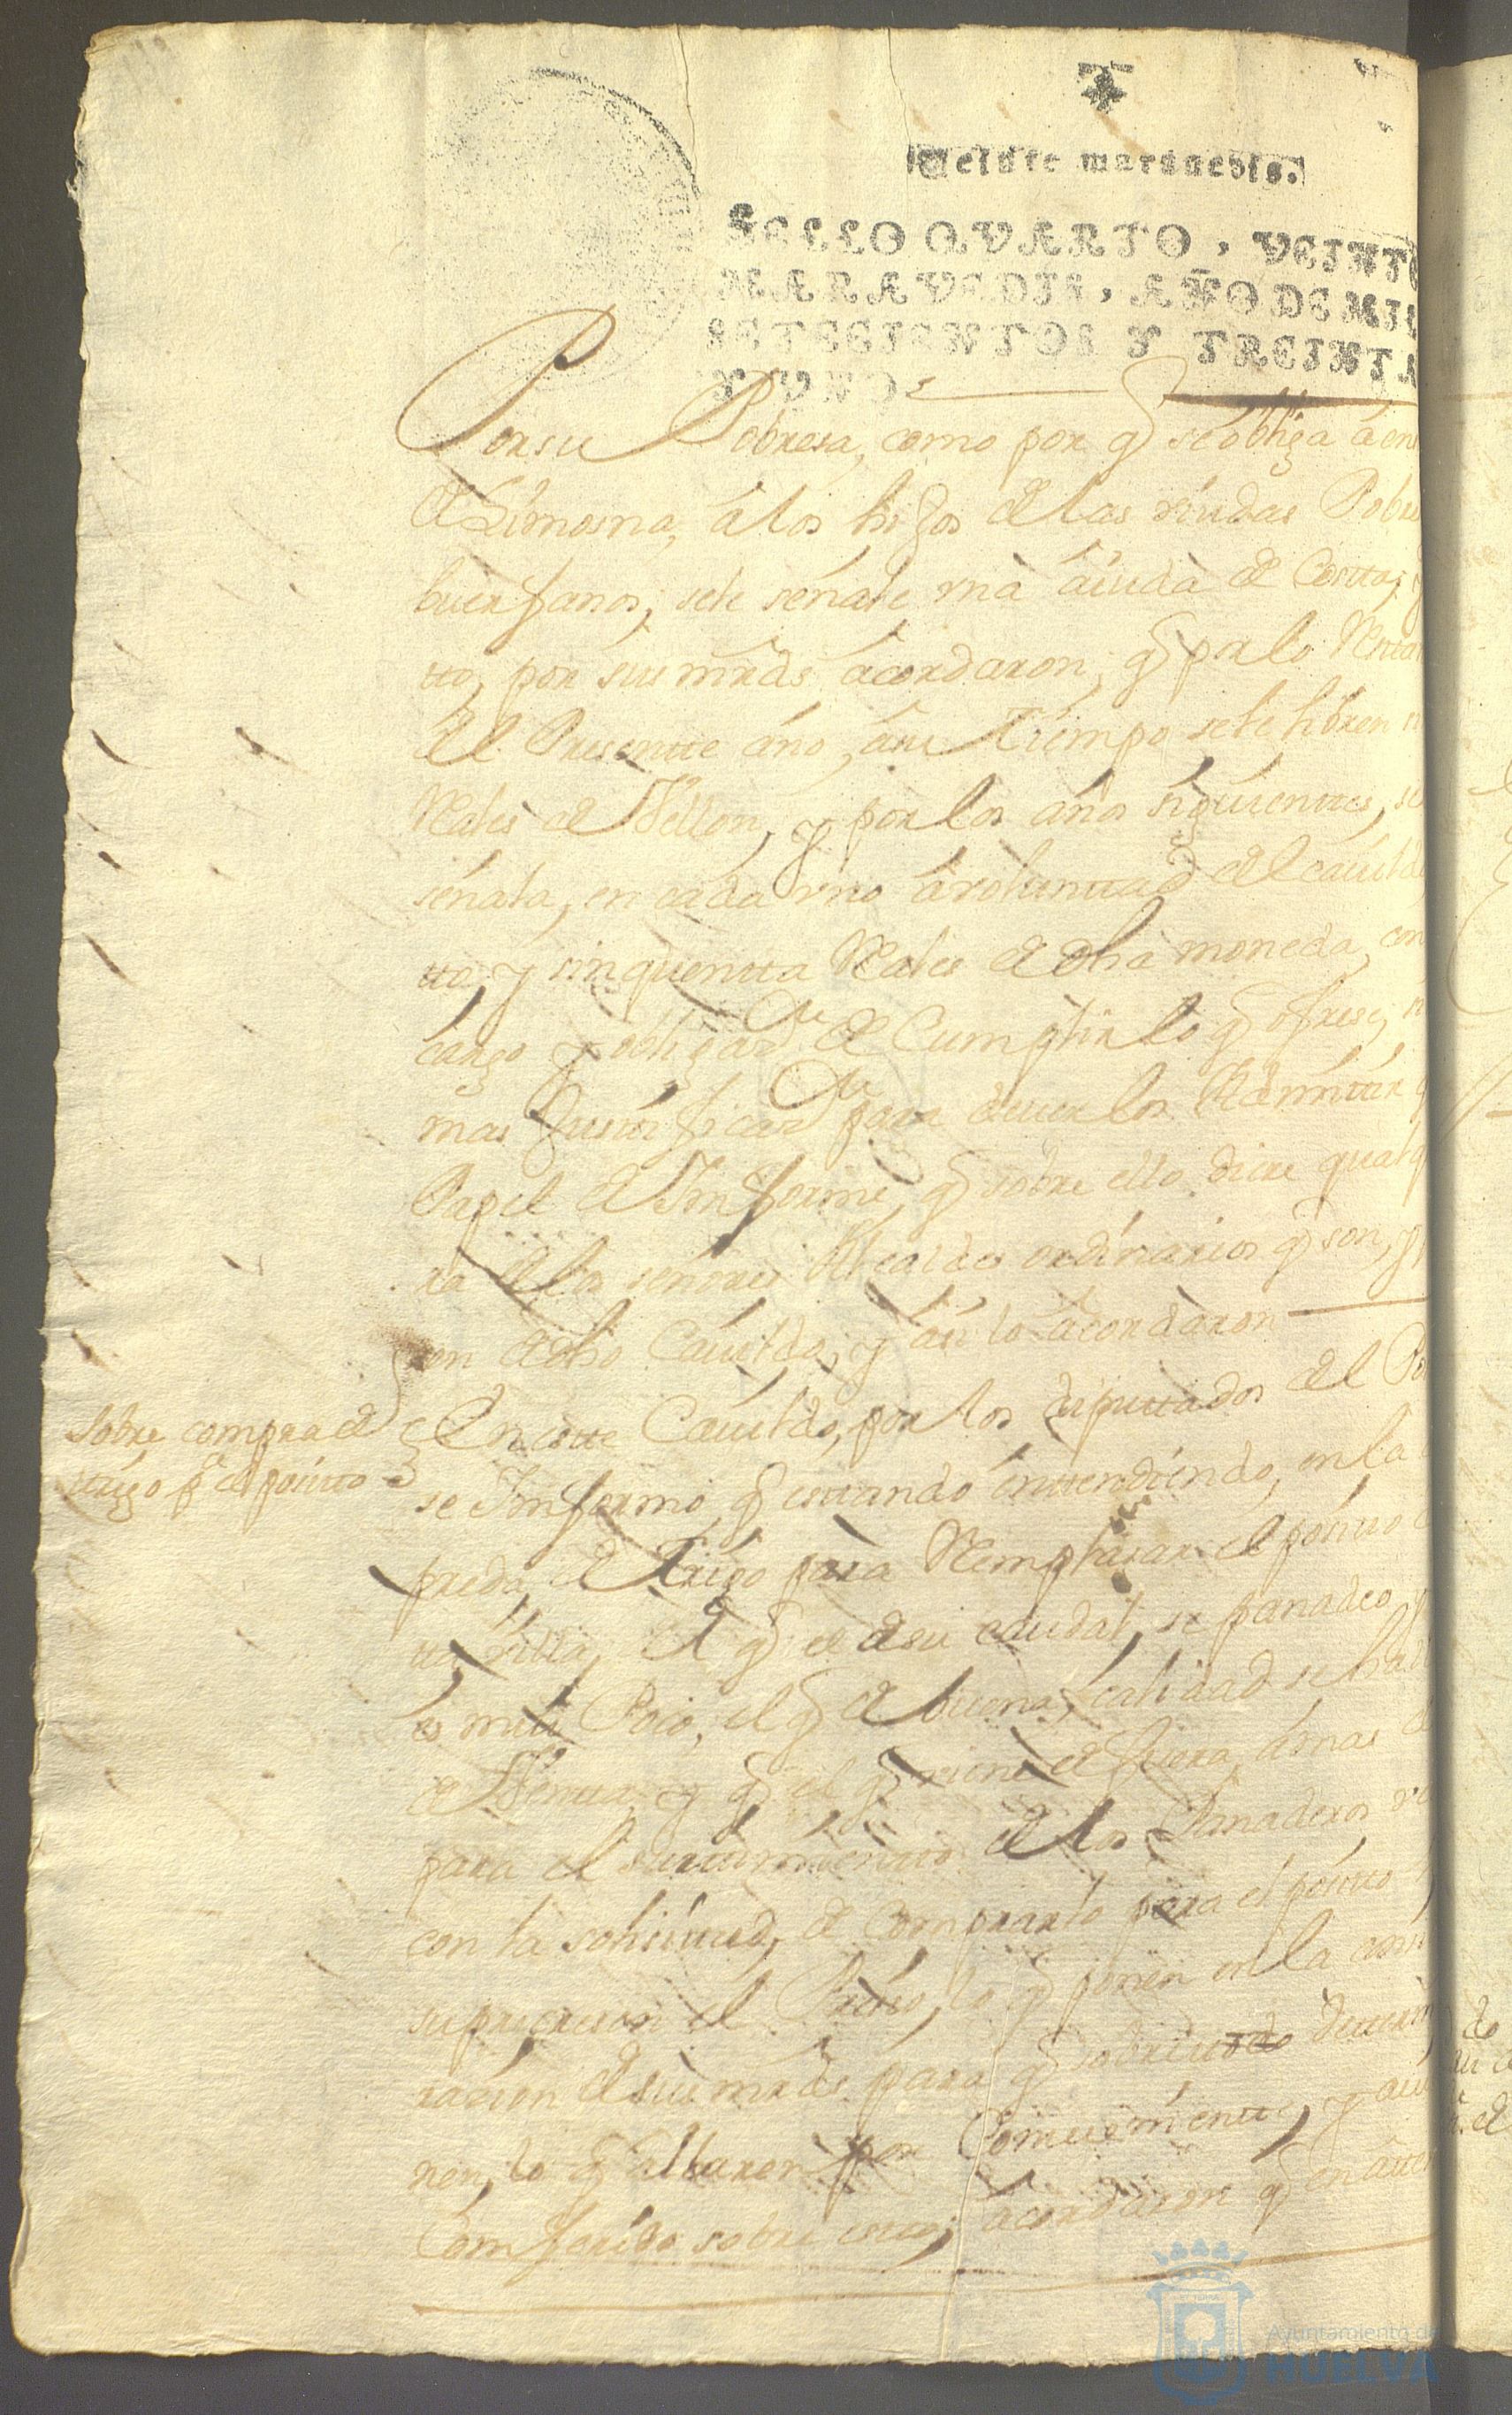 Veinte marauedis.
SELLO QVARTO, VEINTE
MARAVEDIS, AÑO DE MIL
SETECIENTOS Y TREINTA
Y VNO.
Por su Pobresa, como por q se obliga á ens
de Limosna, á los hijos de las viudas Pobre
huerfanos, se le señale vna aiuda de Costta,
tto, por sus mrds acordaron, q por lo
del Presentte año, á su Tiempo se le libren
Reales de Vellon, y por los años siguienttes, se
señala, en cada vno á voluntтad del cauildo
tto, y sinquentta Reales de dha moneda, con
cargo y obligazn de Cumplir lo q ofrese,
mas Justificazn para deuerlos Admittir
Papel de Informe, q sobre ello diere qualq
ra de los señores Alcaldes ordinarios q son, y
en dho Cauildo, y así lo acordaron
Sobre compra de
trigo pa el pósitto
En estte Cauildo, por los diputtados del Po
se Informó, q esttando enttendiendo, en la
preda, de Trigo para Remplasar el pósitto
tta Villa, el q de su caudal, se panadeo,
es mui Poco, el q de buena calidad se halla
de Ventta, y q el q viene de fuera, á mas de
para el surttimientto de los Panaderos
con la solisittud, de Comprarlo para el pósitto
su el Presio, lo q ponen en la consi
rasion de sus mrds para q sobre ttodo dettermi
nen, lo q allaren por Combenientte, y auie
Comferido sobre estto, acordaron q en atten
Ayuntamiento de
HUELVA